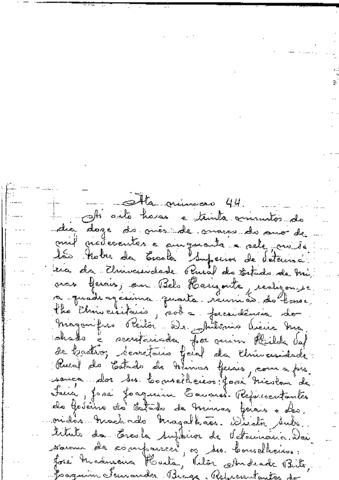 Ata número 44.
Às oito horas e trinta minutos do
dia doze do mês de março do ano de
mil novecentos e cinquenta e sete, no Sa-
lão Nobre da Escola Superior de Veteriná-
ria da Universidade Rural do Estado de Mi-
nas Gerais, em Belo Horizonte, realizou-se
a quadragésima quarta reunião do Conse-
lho Universitário, sob a presidência do
Magnífico Reitor Dr. Antônio Vieira Ma-
chado e secretariada por mim Hilda
de Castro, Secretária Geral da Universidade
Rural do Estado de Minas Gerais, com a pre-
sença dos Srs. Conselheiros: José Nicolau de
Faria, José Joaquim Tavares. Representantes
do Governo do Estado de Minas Gerais e
Machado Magalhães. Diretor Subs-
tituto da Escola Superior de Veterinária. Dei-
xaram de comparecer, os Srs. Conselheiros:
José Horta, Vitor Andrade Brito,
Joaquim Fernandes Braga. Representantes do